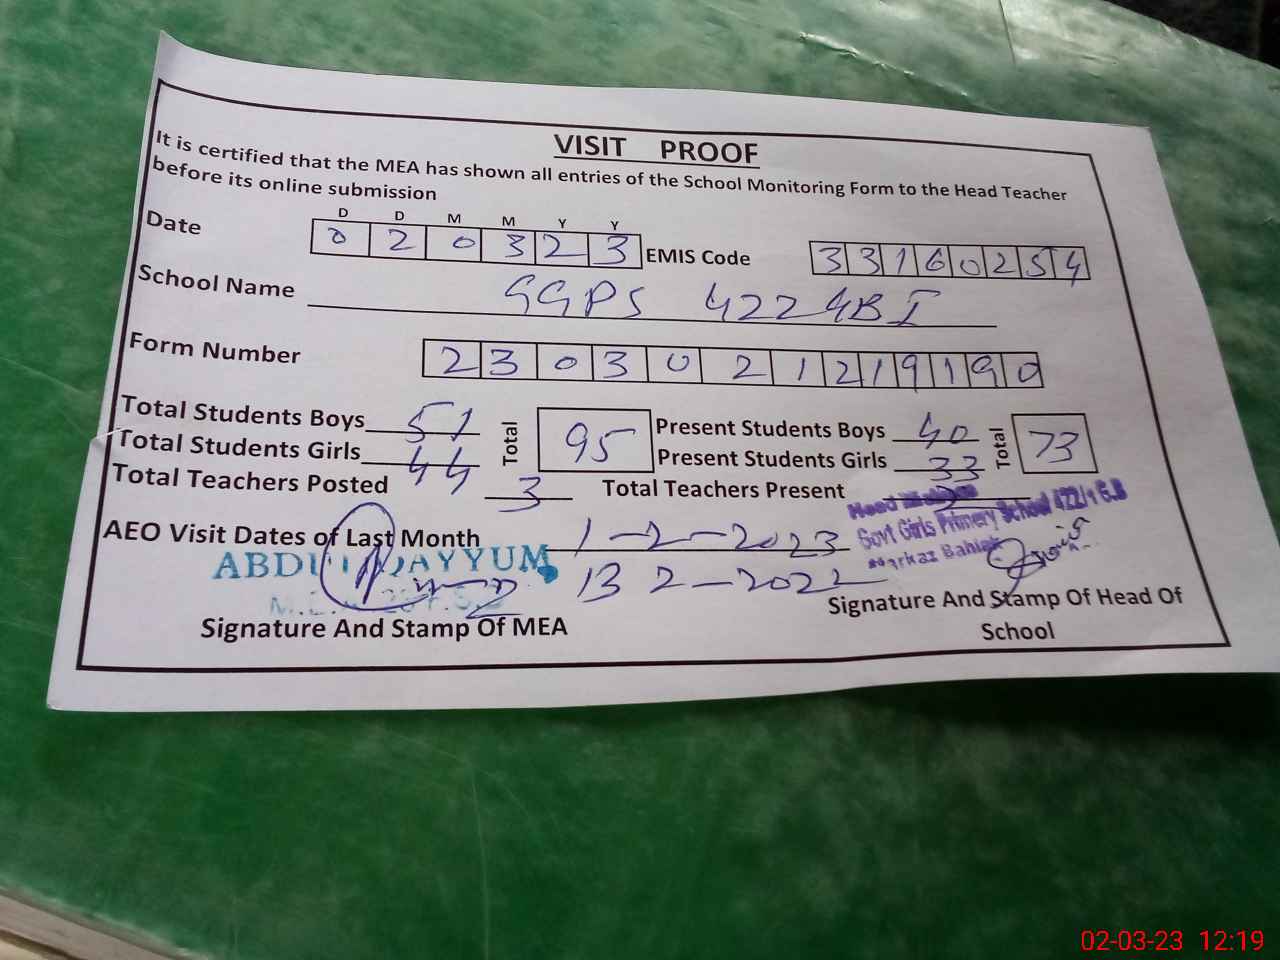 VISIT PROOF
It is certified that the MEA has shown all entries of the School Monitoring Form to the Head Teacher
before its online submission
D D M M Y Y
Date 0 2 0 3 2 3 EMIS Code 3 3 1 6 0 2 5 4
School Name GGPS 422 GB I
Form Number 2 3 0 3 0 2 1 2 1 9 1 9 0
Total Students Boys 51 Total 95 Present Students Boys 40 Total 73
Total Students Girls 44 Present Students Girls 33
Total Teachers Posted 3 Total Teachers Present
Govt Girls Primery School 422/1 G.B
AEO Visit Dates of Last Month 1-2-2023
Markaz
ABDUL QAYYUM 13 2-2022
Signature And Stamp Of MEA
Signature And Stamp Of Head Of
School
02-03-23 12:19